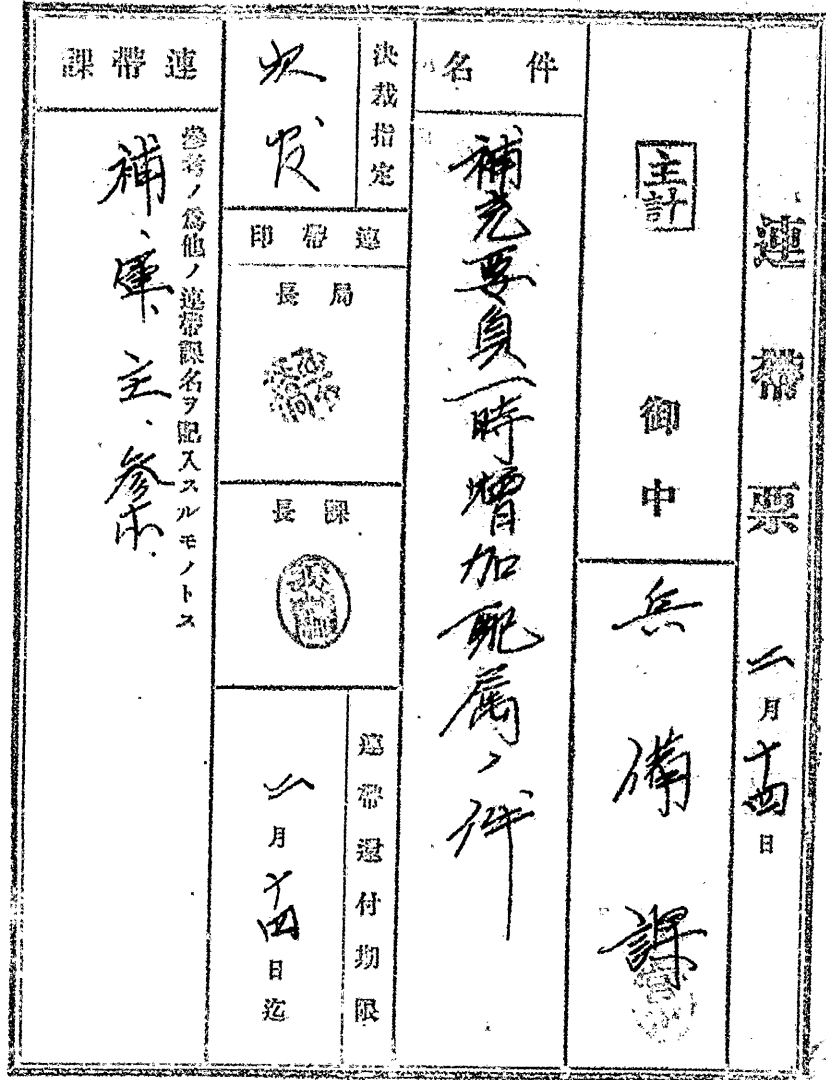 連帶票 二月十四日
主計 御中
兵備課
件名
補充要員一時増加配属ノ件
決裁指定
次
連帶印
局長
課長
連帶還付期限
二月十四日迄
連帶課
參考ノ爲他ノ連帶課名ヲ記入スルモノトス
補、軍、主、參